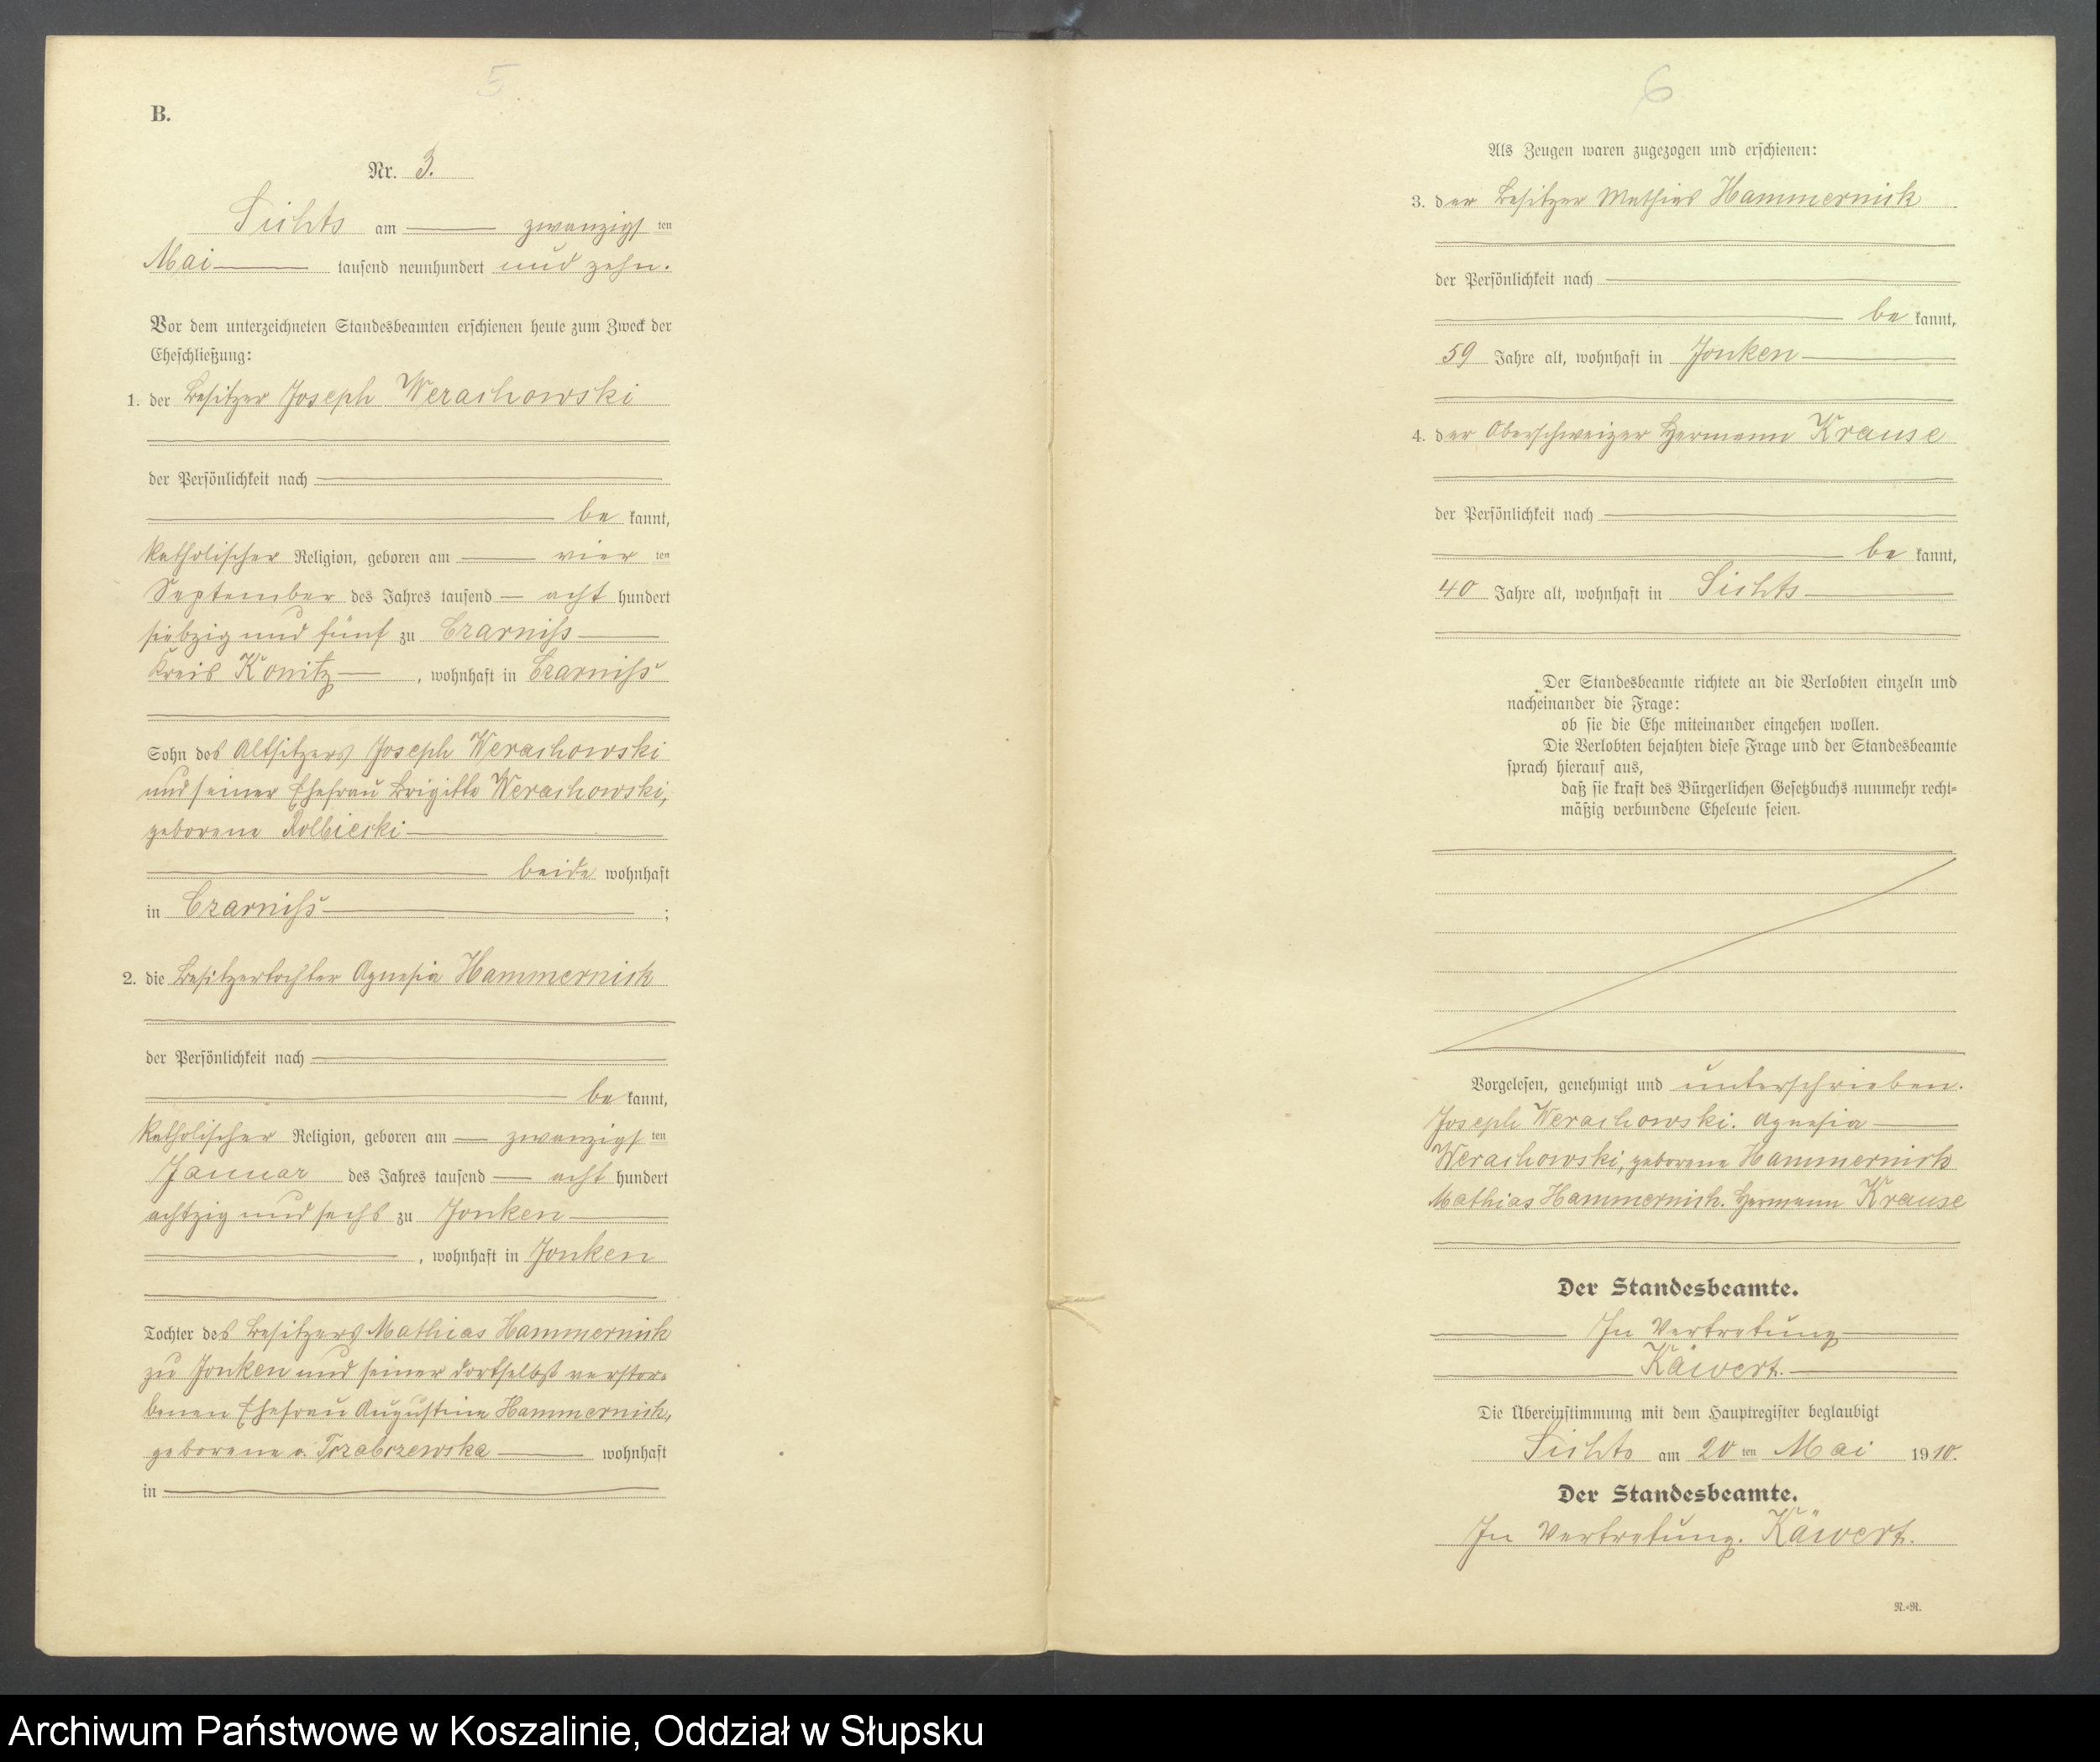 5
B.
Nr. 3.
Sichts am zwanzigsten
Mai tausend neunhundert und zehn.
Vor dem unterzeichneten Standesbeamten erschienen heute zum Zweck der
Eheschließung:
1. der Besitzer Joseph Werachowski
der Persönlichkeit nach
be kannt,
katholischer Religion, geboren am vier ten
September des Jahres tausend acht hundert
siebzig und fünf zu Czarniss
Kreis Konitz, wohnhaft in Czarniss
Sohn des Altsitzers Joseph Werachowski
und seiner Ehefrau Brigitte Werachowski,
geborene Kolbiecki
beide wohnhaft
in Czarniss ;
2. die Besitzertochter Agnesia Hammernick
der Persönlichkeit nach
be kannt,
katholischer Religion, geboren am zwanzigsten
Januar des Jahres tausend acht hundert
achtzig und sechs zu Jonken
, wohnhaft in Jonken
Tochter des Besitzers Mathias Hammernick
zu Jonken und seiner dortselbst verstor-
benen Ehefrau Augustine Hammernick,
geborene v. wohnhaft
in
6
Als Zeugen waren zugezogen und erschienen:
3. der Besitzer Mathias Hammernick
der Persönlichkeit nach
be kannt,
59 Jahre alt, wohnhaft in Jonken
4. der Oberschweizer Hermann Krause
der Persönlichkeit nach
be kannt,
40 Jahre alt, wohnhaft in Sichts
Der Standesbeamte richtete an die Verlobten einzeln und
nacheinander die Frage:
ob sie die Ehe miteinander eingehen wollen.
Die Verlobten bejahten diese Frage und der Standesbeamte
sprach hierauf aus,
daß sie kraft des Bürgerlichen Gesetzbuchs nunmehr recht-
mäßig verbundene Eheleute seien.
Vorgelesen, genehmigt und unterschrieben.
Joseph Werachowski. Agnesia
Werachowski, geborene Hammernick
Mathias Hammernick. Hermann Krause
Der Standesbeamte.
In Vertretung
Käwert.
Die Übereinstimmung mit dem Hauptregister beglaubigt
Sichts am 20 ten Mai 1910.
Der Standesbeamte.
In Vertretung. Käwert.
N.-N.
Archiwum Państwowe w Koszalinie, Oddział w Słupsku